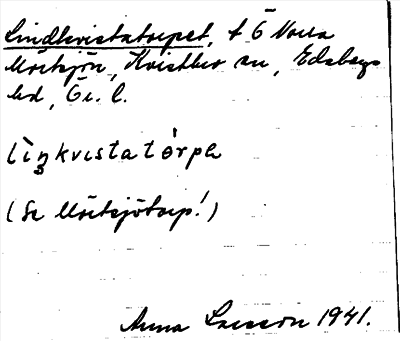 Lindkvistatorpet, t Ö Norra
Mörtsjön, Kvistbro sn, Edsbergs
hd, Ör. l.
lìŋkvɩstatórpa
(Se Mörtsjötorp!)
Anna Larsson 1941.